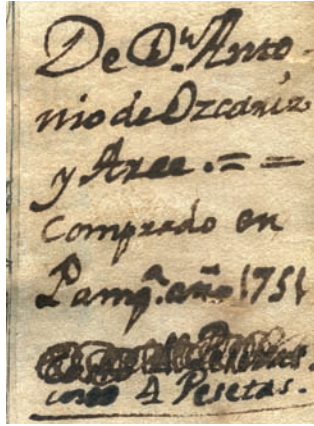 De Dn. Anto-
nio de Ozcariz
y Arce. = =
Comprado en
Pampa. año 1751
costo 4 Pesetas.